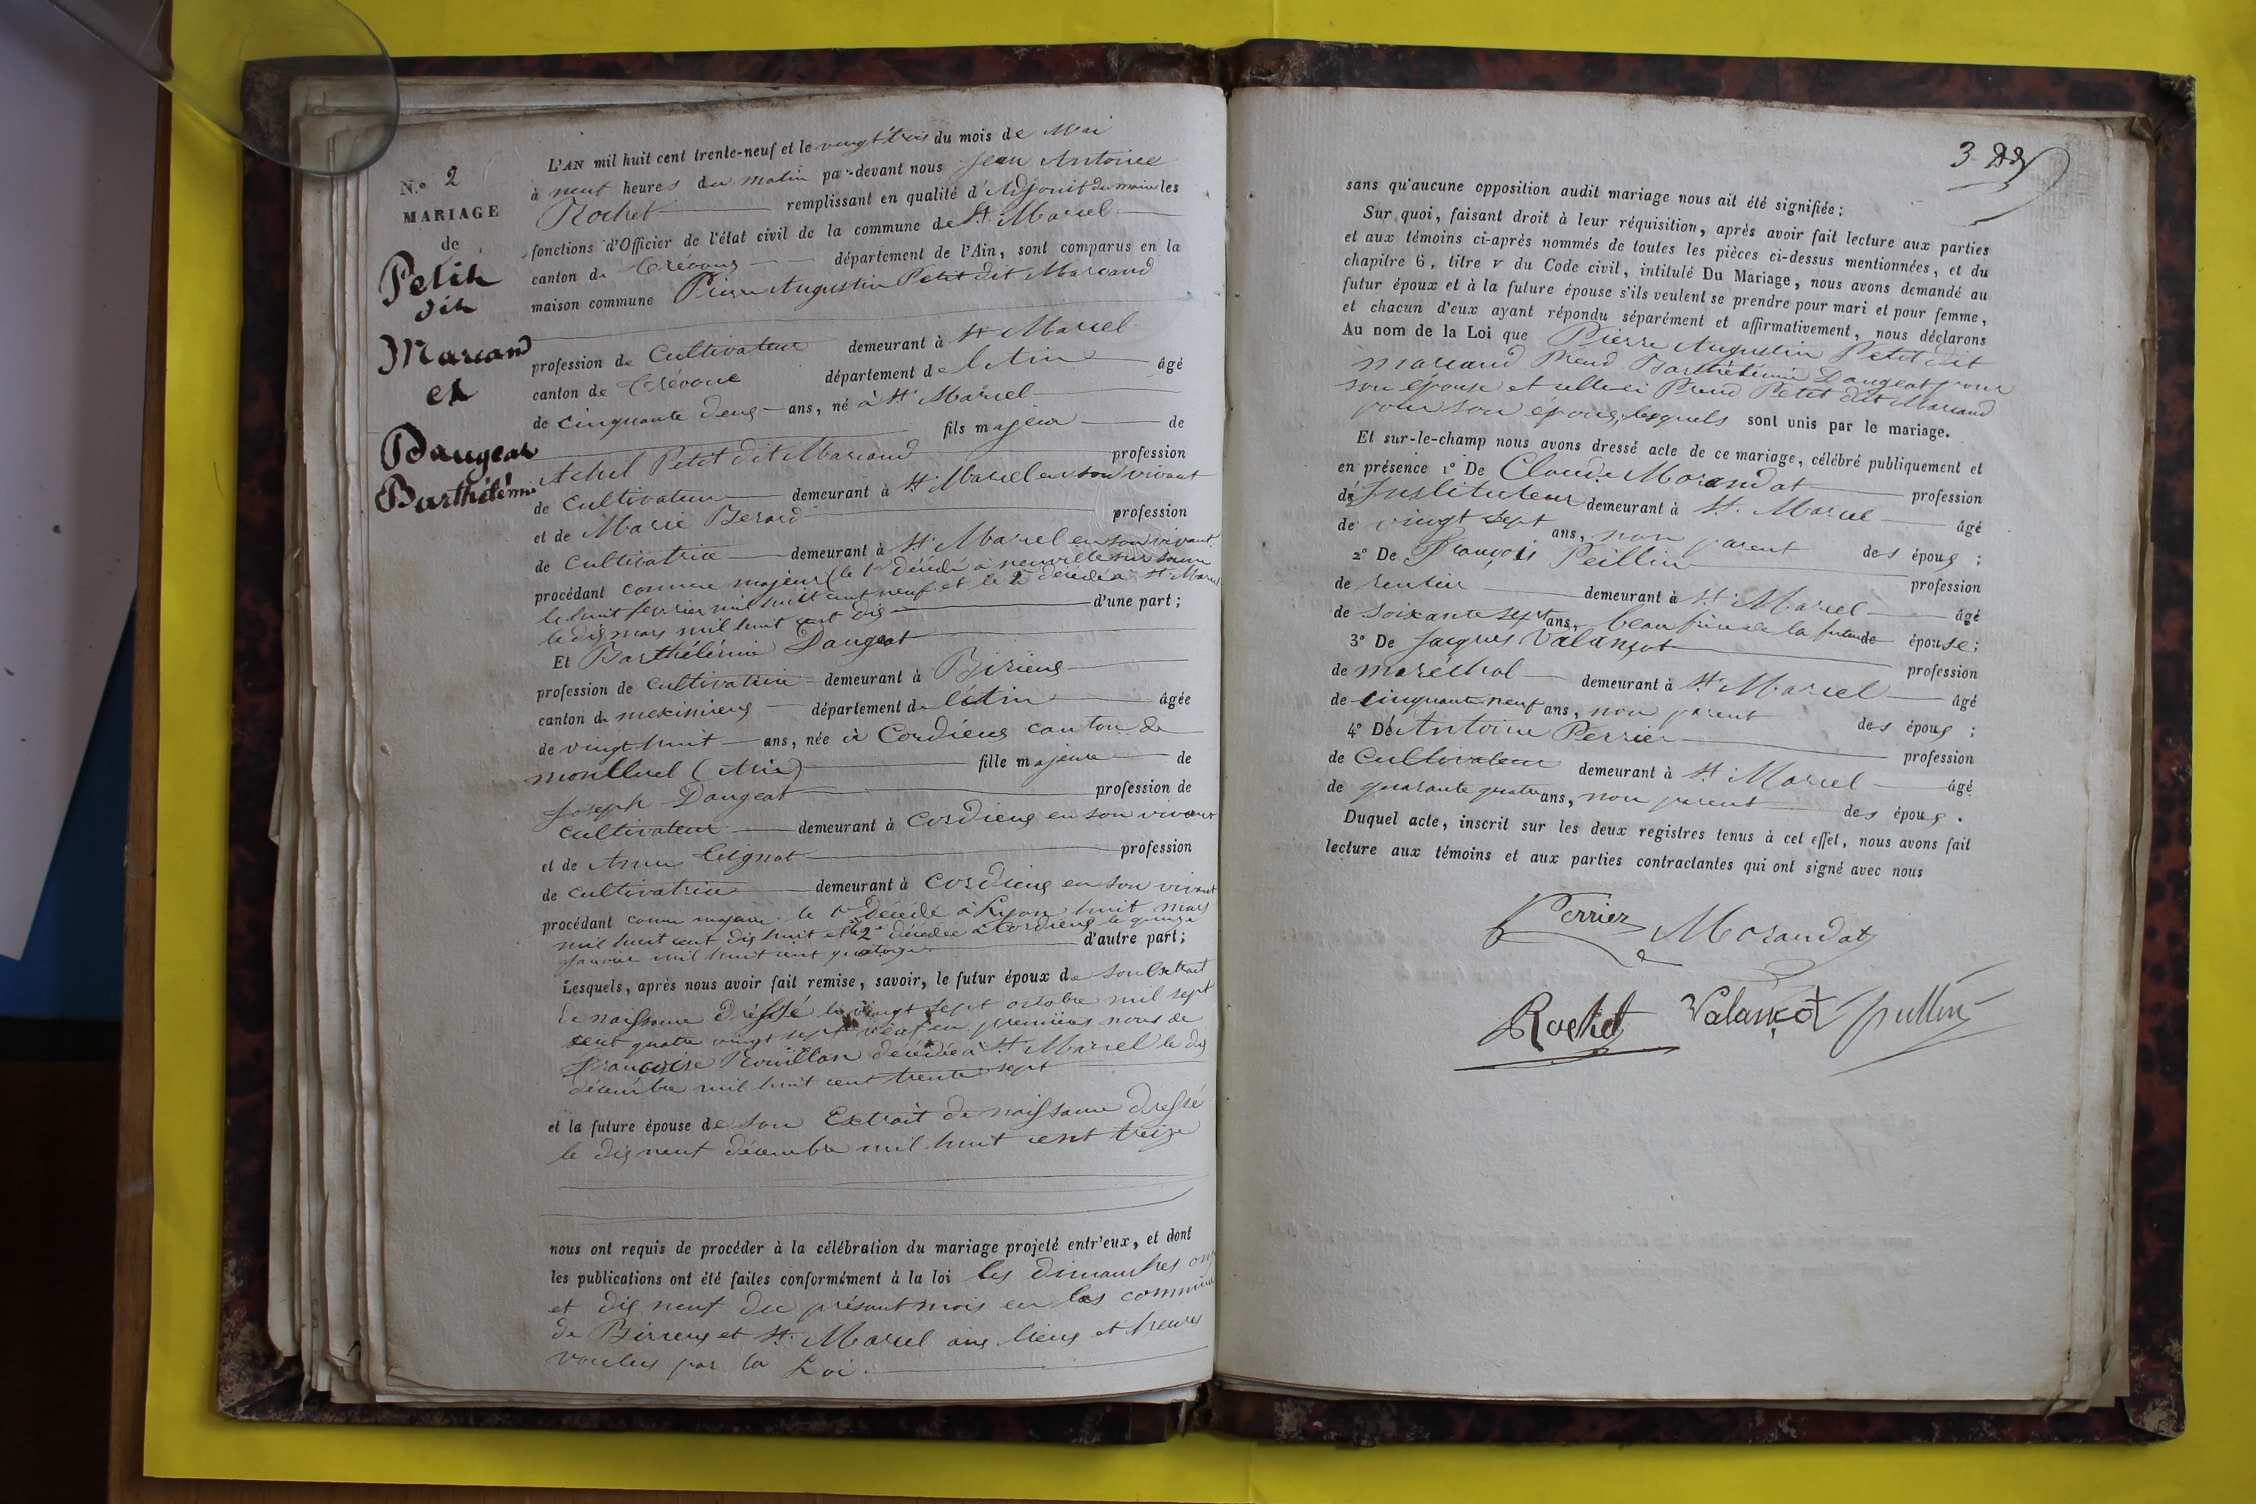 N.° 2
MARIAGE
de
Petit
dit
Marcand
et
Daugeat
Barthélémie
L'AN mil huit cent trente-neuf et le vingt trois du mois de Mai
à neuf heures du matin par-devant nous Jean Antoine
Rochet remplissant en qualité d'Adjoint du maire les
fonctions d'Officier de l'état civil de la commune de St. Marcel
canton de Trévoux département de l'Ain, sont comparus en la
maison commune Pierre Augustin Petit dit Marcand
profession de Cultivateur demeurant à St Marcel
canton de Trévoux département de l'Ain âgé
de cinquante deux ans, né à St Marcel
fils majeur de
Petit dit Marcand profession
de Cultivateur demeurant à St Marcel en son vivant
et de Marie Berard profession
de Cultivatrice demeurant à St. Marcel en son vivant
procédant comme majeur (le 1er décédé à neuville sur
le huit février mil huit cent neuf et la 2e décédée à St Marcel
le dix mars mil huit cent dix d'une part;
Et Barthélémie Daugeat
profession de Cultivatrice demeurant à Birieux
canton de meximieux département de l'Ain âgée
de vingt huit ans, née à Cordieux canton de
montluel (Ain) fille majeure de
Joseph Daugeat profession de
Cultivateur demeurant à Cordieux en son vivant
et de Anne profession
de Cultivatrice demeurant à Cordieux en son vivant
procédant comme majeure le 1er décédé à Lyon huit mars
mil huit cent dix huit et la 2e décédée à Cordieux le quinze
janvier mil huit cent quatorze d'autre part;
Lesquels, après nous avoir fait remise, savoir, le futur époux de son Extrait
de naissance dréssé le vingt sept octobre mil sept
cent quatre vingt sept veuf en premières noces de
Françoise Rouillon décédée à St. Marcel le dix
décembre mil huit cent trente sept
et la future épouse de son Extrait de naissance dressé
le dix neuf décembre mil huit cent treize
nous ont requis de procéder à la célébration du mariage projeté entr'eux, et dont
les publications ont été faites conformément à la loi les dimanches
et dix neuf du présent mois en les communes
de Birieux et St. Marcel aux lieux et heures
voulus par la Loi
3
sans qu'aucune opposition audit mariage nous ait été signifiée:
Sur quoi, faisant droit à leur réquisition, après avoir fait lecture aux parties
et aux témoins ci-après nommés de toutes les pièces ci-dessus mentionnées, et du
chapitre 6, titre V du Code civil, intitulé Du Mariage, nous avons demandé au
futur époux et à la future épouse s'ils veulent se prendre pour mari et pour femme,
et chacun d'eux ayant répondu séparément et affirmativement, nous déclarons
Au nom de la Loi que Pierre Augustin Petit dit
marcand Prend Barthélémie Daugeat pour
son épouse et celle ci Prend Petit dit Marcand
pour son époux, lesquels sont unis par le mariage.
Et sur-le-champ nous avons dressé acte de ce mariage, célébré publiquement et
en présence 1° De Claude Morandat profession
de Instituteur demeurant à St. Marcel âgé
de vingt sept ans, non parent des époux;
2° De François Peillin profession
de rentier demeurant à St. Marcel âgé
de soixante sept ans, beau frère de la future épouse;
3° De Jacques Valançot profession
de maréchal demeurant à St. Marcel âgé
de cinquante neuf ans, non parent des époux;
4° De Antoine Perrier profession
de Cultivateur demeurant à St. Marcel âgé
de quarante quatre ans, non parent des époux.
Duquel acte, inscrit sur les deux registres tenus à cet effet, nous avons fait
lecture aux témoins et aux parties contractantes qui ont signé avec nous
Perrier Morandat
Rochet Valançot Peillin